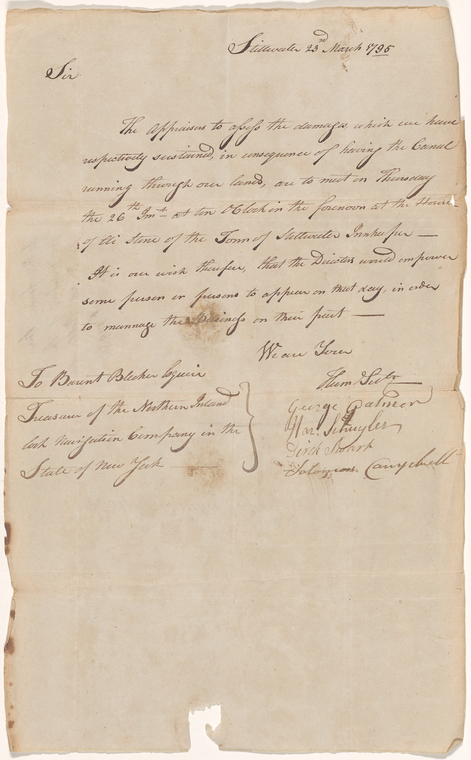 Stillwater 23d March 1795
Sir
The Appraisers to assess the damages which we have
respectively sustained, in consequence of having the Canal
running through our lands, are to meet on Thursday
the 26th Inst at ten OClock in the forenoon at the House
of Eli Stone of the Town of Stillwater Innkeeper —
It is our wish therefore, that the Directors would empower
some person or persons to appear on that day, in order
to mannage the business on their part —
We are Your
Hum Servts
To Barent Bleeker Esquire
Treasurer of the Northern Inland
Lock Navigation Company in the
State of New York
George Palmer
Har. Schuyler
Dirck Swart
Solomon Campbell